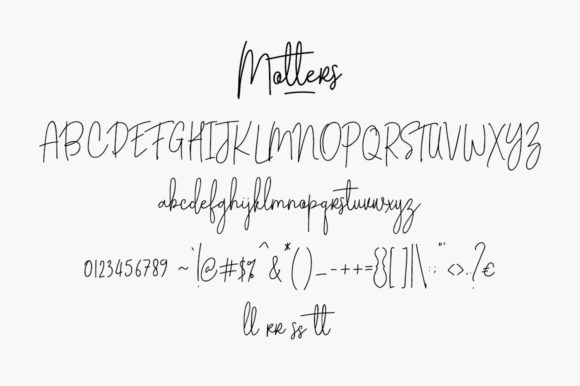 Motters
ABCDEFGHIJKLMNOPQRSTUVWXYZ
abcdefghijklmnopqrstuvwxyz
0123456789 ~`!@#$%^&*()_-++={}[]|\:;"'<>.,?€
ll rr ss tt